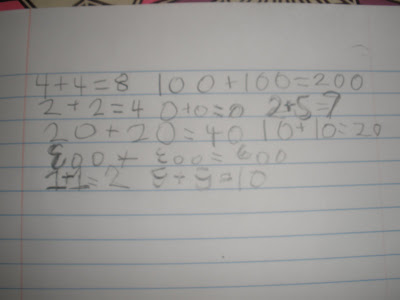 4+4=8 100+100=200
2+2=4 0+0=0 2+5=7
20+20=40 10+10=20
300+300=600
1+1=2 5+5=10